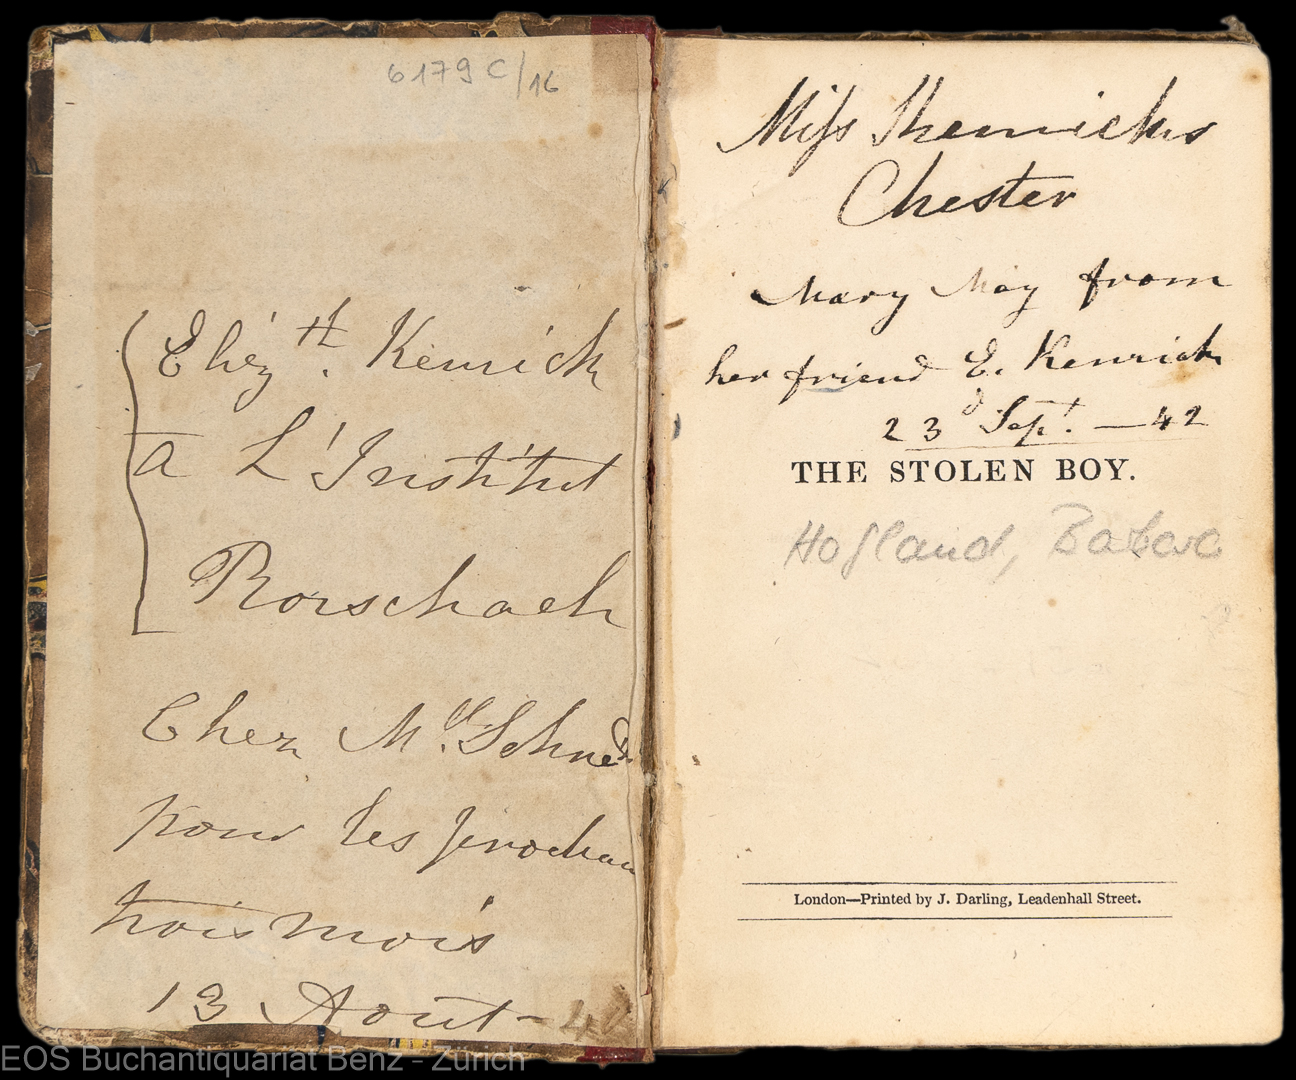 6179 C/16
Elizth. Kenrick
a L'Institut
Rorschach
Chez Mlle. Schneid
pour les prochain
trois mois
13 Aout - 4
Miss Kenricks
Chester
Mary May from
her friend E. Kenrick
23d Sept. — 42
THE STOLEN BOY.
Hofland, Barbara
London—Printed by J. Darling, Leadenhall Street.
EOS Buchantiquariat Benz - Zürich